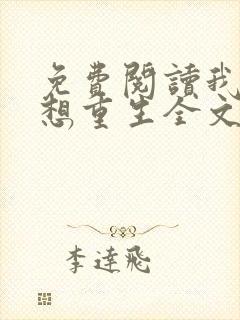 免費閱讀我
想重生全文
李達飛